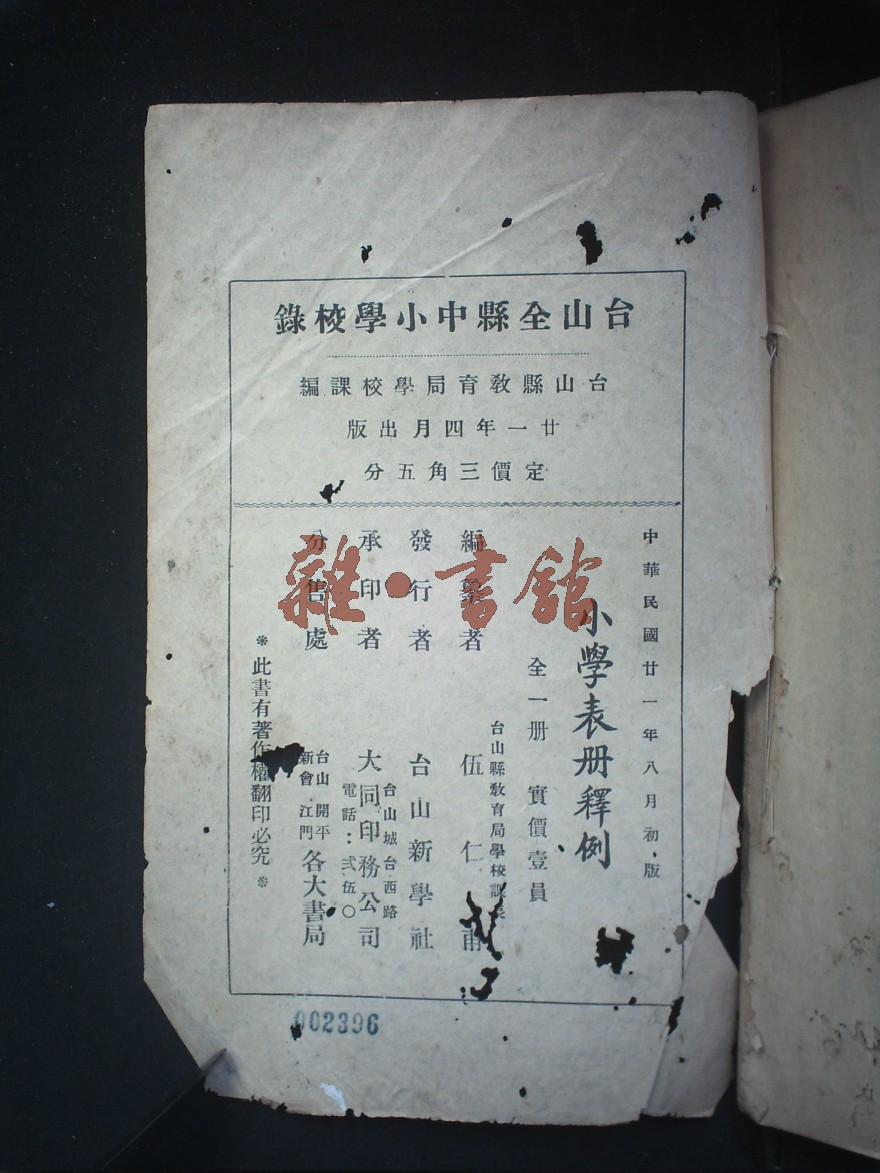 台山全縣中小學校錄
台山縣教育局學校課編
廿一年四月出版
定價三角五分
中華民國廿一年八月初版
小學表册釋例
全一册 實價壹員
台山縣教育局學校課長
編纂者 伍仁甫
發行者 台山新學社
承印者 大同印務公司
台山城台西路
電話：弍伍〇
分售處 台山 開平 新會 江門 各大書局
＊此書有著作權翻印必究＊
雜·書館
002396